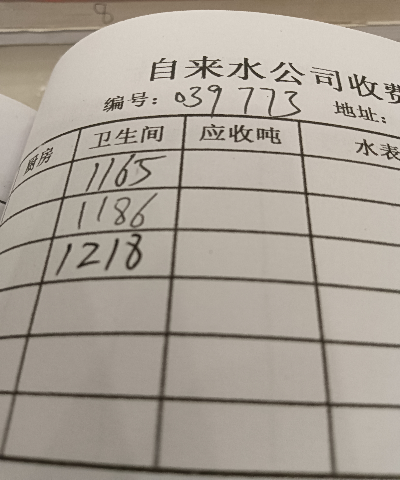 自来水公司收费
编号: 039773 地址:
厨房 卫生间 应收吨 水表
1165
1186
1218